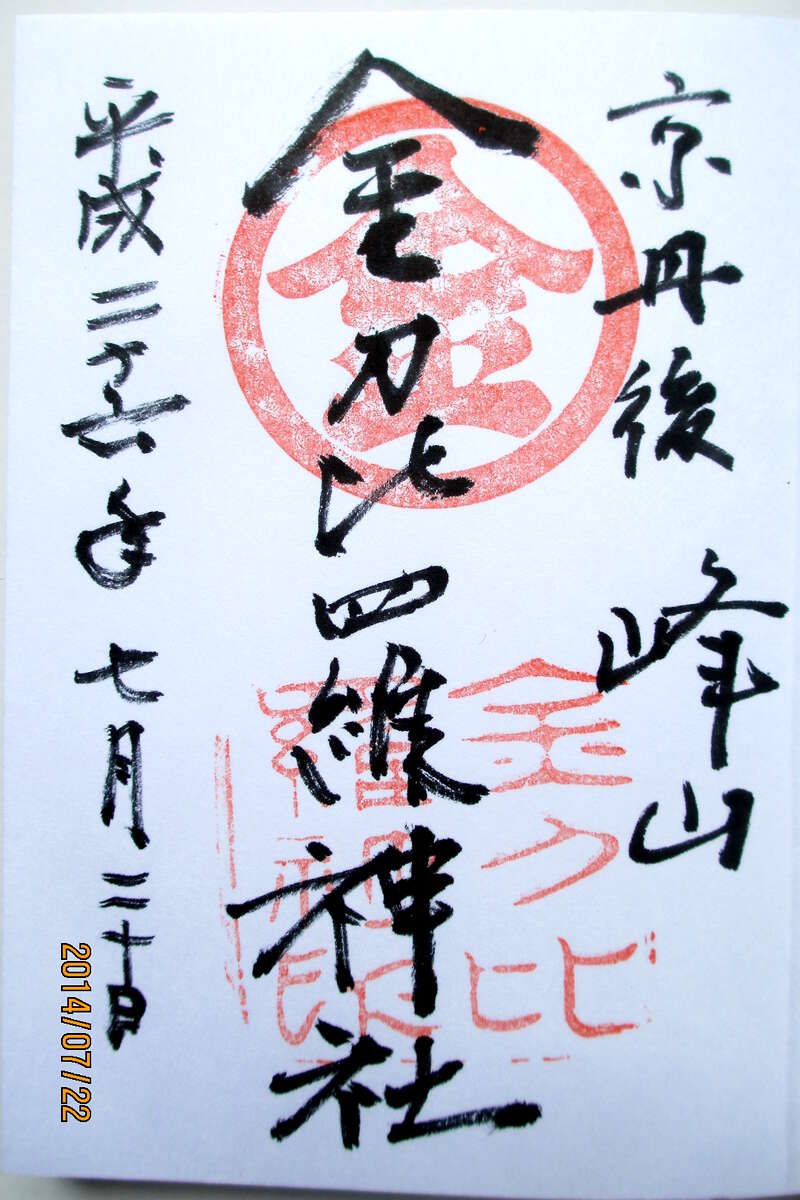 京丹後 峰山
金刀比羅神社
平成二十六年七月二十日
金
金刀比
2014/07/22